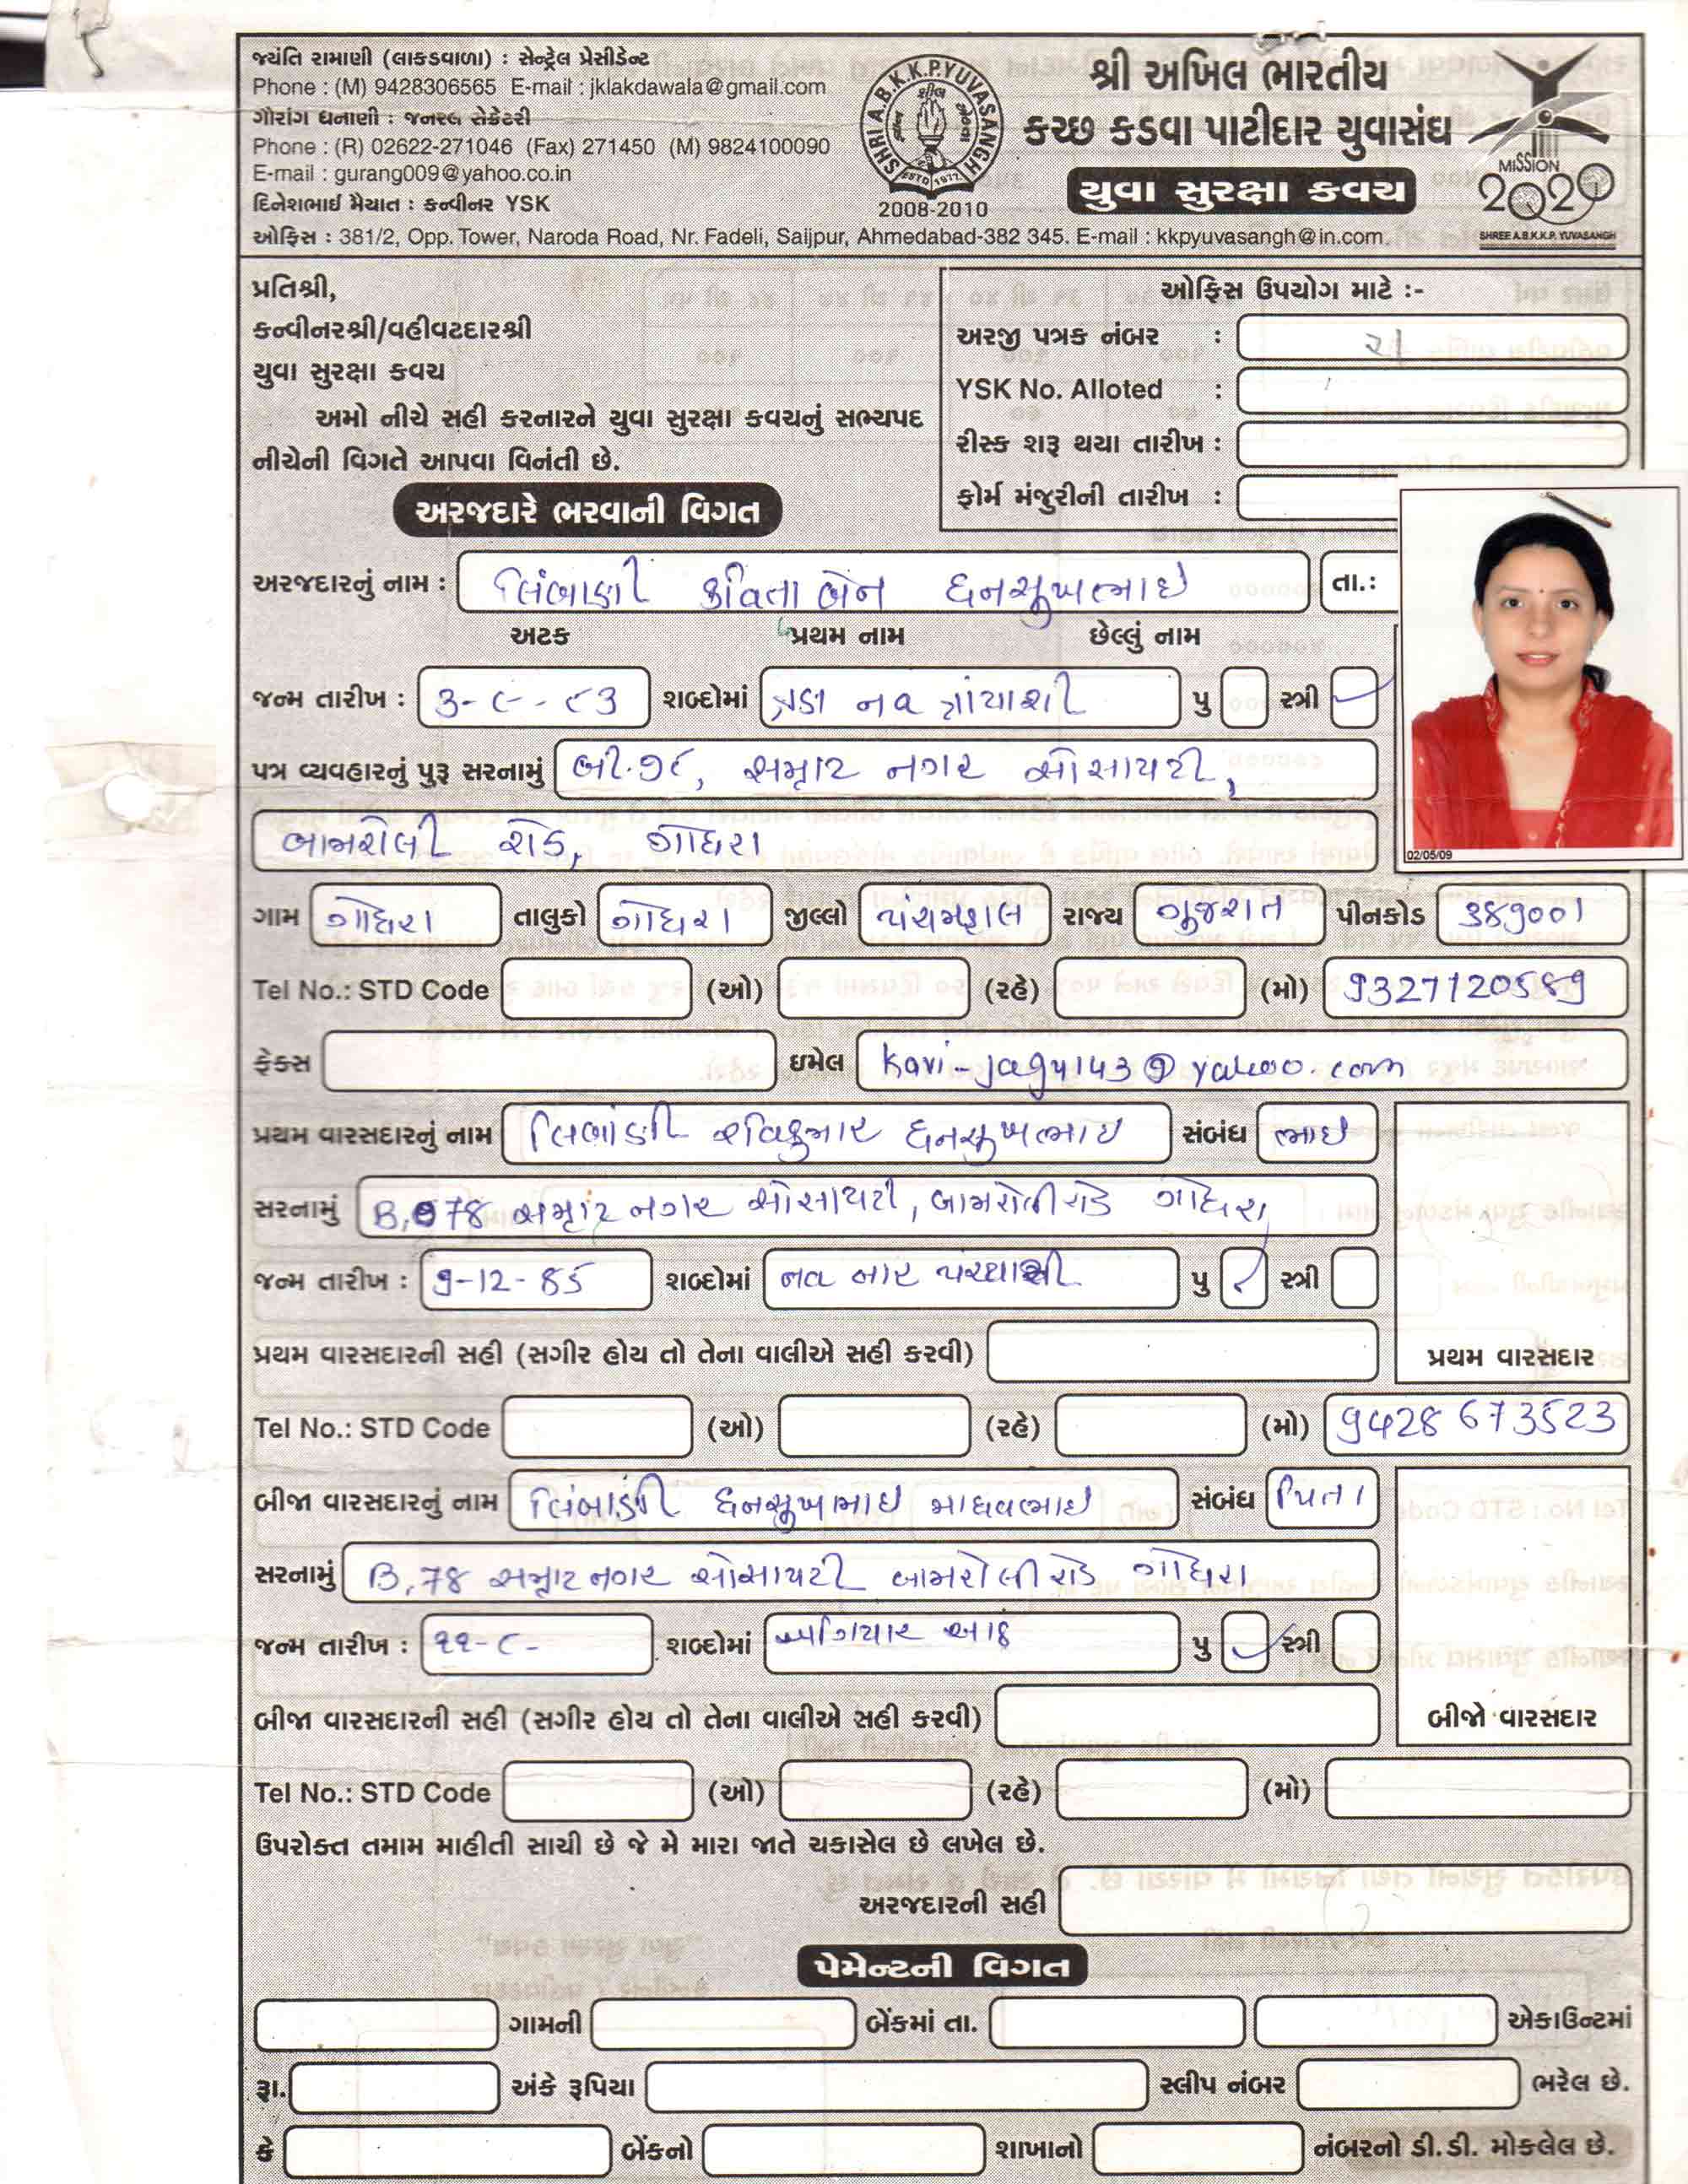 જયંતિ રામાણી (લાકડવાળા) : સેન્ટ્રેલ પ્રેસીડેન્ટ
Phone : (M) 9428306565 E-mail : jklakdawala@gmail.com
ગૌરાંગ ધનાણી : જનરલ સેક્રેટરી
Phone : (R) 02622-271046 (Fax) 271450 (M) 9824100090
E-mail : gurang009@yahoo.co.in
દિનેશભાઈ મૈયાત : કન્વીનર YSK
SHRI A.B.K.K.P.YUVASANGH
ESTD 1977
2008-2010
શ્રી અખિલ ભારતીય
કચ્છ કડવા પાટીદાર યુવાસંઘ
યુવા સુરક્ષા કવચ
MISSION
2020
SHREE A.B.K.K.P. YUVASANGH
ઓફિસ : 381/2, Opp. Tower, Naroda Road, Nr. Fadeli, Saijpur, Ahmedabad-382 345. E-mail : kkpyuvasangh@in.com.
પ્રતિશ્રી,
કન્વીનરશ્રી/વહીવટદારશ્રી
યુવા સુરક્ષા કવચ
અમો નીચે સહી કરનારને યુવા સુરક્ષા કવચનું સભ્યપદ
નીચેની વિગતે આપવા વિનંતી છે.
ઓફિસ ઉપયોગ માટે :-
અરજી પત્રક નંબર :
YSK No. Alloted :
રીસ્ક શરૂ થયા તારીખ :
ફોર્મ મંજુરીની તારીખ :
અરજદારે ભરવાની વિગત
અરજદારનું નામ : લિંબાણી કવિતાબેન ધનસુખભાઇ તા.:
અટક પ્રથમ નામ છેલ્લું નામ
જન્મ તારીખ : 3-૯-૮3 શબ્દોમાં ત્રણ નવ ત્રાંયાશી પુ સ્ત્રી ✓
પત્ર વ્યવહારનું પુરૂ સરનામું બી.૭૮, સમ્રાટ નગર સોસાયટી,
બામરોલી રોડ, ગોધરા
02/05/09
ગામ ગોધરા તાલુકો ગોધરા જીલ્લો પંચમહાલ રાજ્ય ગુજરાત પીનકોડ 389001
Tel No.: STD Code (ઓ) (રહે) (મો) 9327120589
ફેક્સ ઇમેલ kavi-jagu143@yahoo.com
પ્રથમ વારસદારનું નામ લિંબાણી રવિકુમાર ધનસુખભાઇ સંબંધ ભાઇ
સરનામું B,78 સમ્રાટ નગર સોસાયટી, બામરોલી રોડ ગોધરા
જન્મ તારીખ : 9-12-85 શબ્દોમાં નવ બાર પંચ્યાસી પુ ✓ સ્ત્રી
પ્રથમ વારસદારની સહી (સગીર હોય તો તેના વાલીએ સહી કરવી)
પ્રથમ વારસદાર
Tel No.: STD Code (ઓ) (રહે) (મો) 9428673523
બીજા વારસદારનું નામ લિંબાણી ધનસુખભાઇ માધવભાઇ સંબંધ પિતા
સરનામું B,78 સમ્રાટ નગર સોસાયટી બામરોલી રોડ ગોધરા
જન્મ તારીખ : ૧૧-૮- શબ્દોમાં અગિયાર આઠ પુ ✓ સ્ત્રી
બીજા વારસદારની સહી (સગીર હોય તો તેના વાલીએ સહી કરવી)
બીજો વારસદાર
Tel No.: STD Code (ઓ) (રહે) (મો)
ઉપરોક્ત તમામ માહીતી સાચી છે જે મે મારા જાતે ચકાસેલ છે લખેલ છે.
અરજદારની સહી
પેમેન્ટની વિગત
ગામની બેંકમાં તા. એકાઉન્ટમાં
રૂા. અંકે રૂપિયા સ્લીપ નંબર ભરેલ છે.
કે બેંકનો શાખાનો નંબરનો ડી.ડી. મોકલેલ છે.